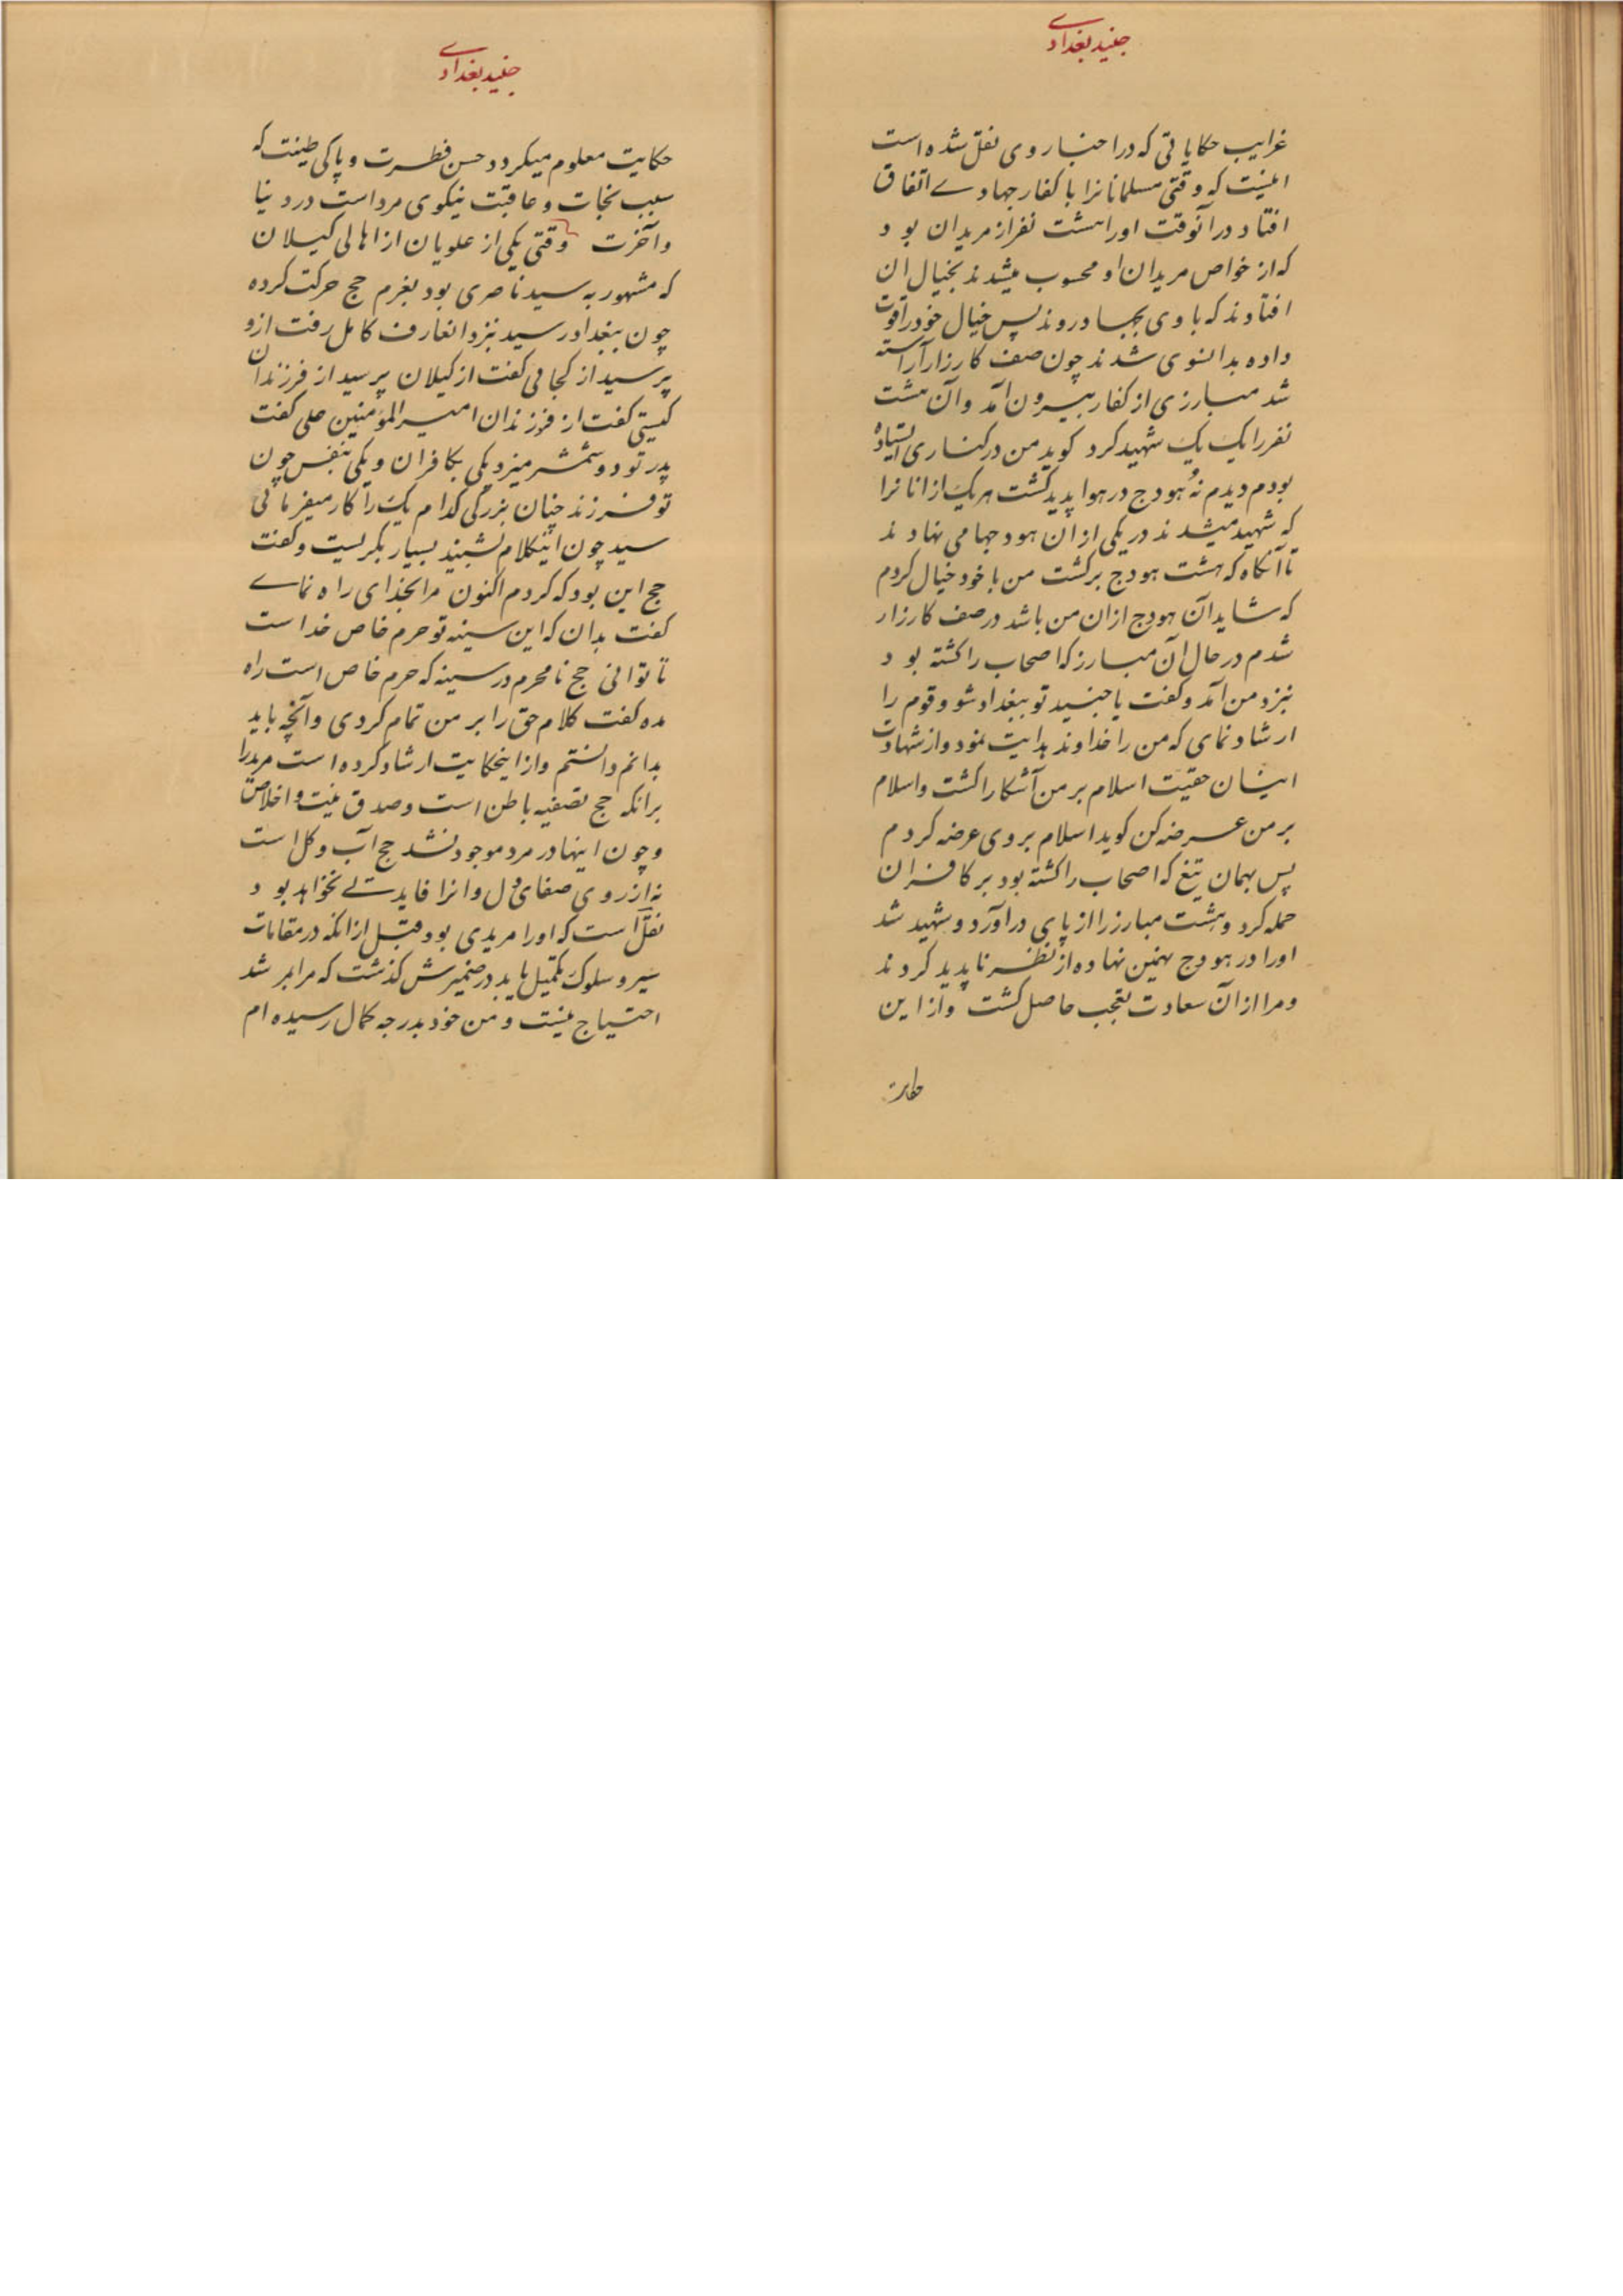 جنید بغدادی
غرایب حکایاتی که در اخبار وی نقل شده است
اینست که وقتی مسلمانانرا با کفار جهادے اتفاق
افتاد در آنوقت او را هشت نفر از مریدان بود
که از خواص مریدان او محسوب میشدند بخیال ان
افتادند که با وی بجهاد روند پس خیال خود را قوت
داده بدانسوی شدند چون صف کارزار آراسته
شد مبارزی از کفار بیرون آمد و آن هشت
نفر را یک یک شهید کرد کوید من در کناری ایستاده
بودم دیدم نه هودج در هوا پدید کشت هر یک از انانرا
که شهید میشدند در یکی از ان هودجها می نهادند
تا آنکاه که هشت هودج برکشت من با خود خیال کردم
که شاید آن هودج ازان من باشد در صف کارزار
شدم در حال ان مبارز که اصحاب را کشته بود
نزد من آمد و کفت یا جنید تو ببغداد شو و قوم را
ارشاد نمای که من را خداوند هدایت نمود و از شهادت
اینسان حقیت اسلام بر من آشکارا کشت و اسلام
بر من عرضه کن کوید اسلام بر وی عرضه کردم
پس بهمان تیغ که اصحاب را کشته بود بر کافران
حمله کرد و هشت مبارز را از پای در آورد و شهید شد
او را در هودج نهمین نهاده از نظر ناپدید کردند
و مرا از آن سعادت تعجب حاصل کشت و از این
حکایت
جنید بغدادی
حکایت معلوم میکردد حسن فطرت و پاکی طینت که
سبب نجات و عاقبت نیکوی مرد است در دنیا
و آخرت وقتی یکی از علویان از اهالی کیلان
که مشهور به سید ناصری بود بعزم حج حرکت کرده
چون ببغداد رسید نزد انعارف کامل رفت ازو
پرسید از کجائی کفت از کیلان پرسید از فرزندان
کیستی کفت از فرزندان امیر المؤمنین علی کفت
پدر تو دو شمشیر میزد یکی بکافران و یکی بنفس چون
تو فرزند چنان بزرکی کدام یک را کار میفرمائی
سید چون اینکلام بشنید بسیار بکریست و کفت
حج این بود که کردم اکنون مرا بخدای راه نماے
کفت بدان که این سینه تو حرم خاص خداست
تا توانی هیچ نامحرم در سینه که حرم خاص است راه
مده کفت کلام حق را بر من تمام کردی و آنچه باید
بدانم دانستم و از اینحکایت ارشاد کرده است مرید را
برانکه حج تصفیه باطن است و صدق نیت و اخلاص
و چون اینها در مرد موجود نشد حج آب و کل است
نه از روی صفای دل و انرا فایدتے نخواهد بود
نقل است که او را مریدی بود قبل از انکه در مقامات
سیر و سلوک تکمیل یابد در ضمیرش کذشت که مرا بمرشد
احتیاج نیست و من خود بدرجه کمال رسیده ام